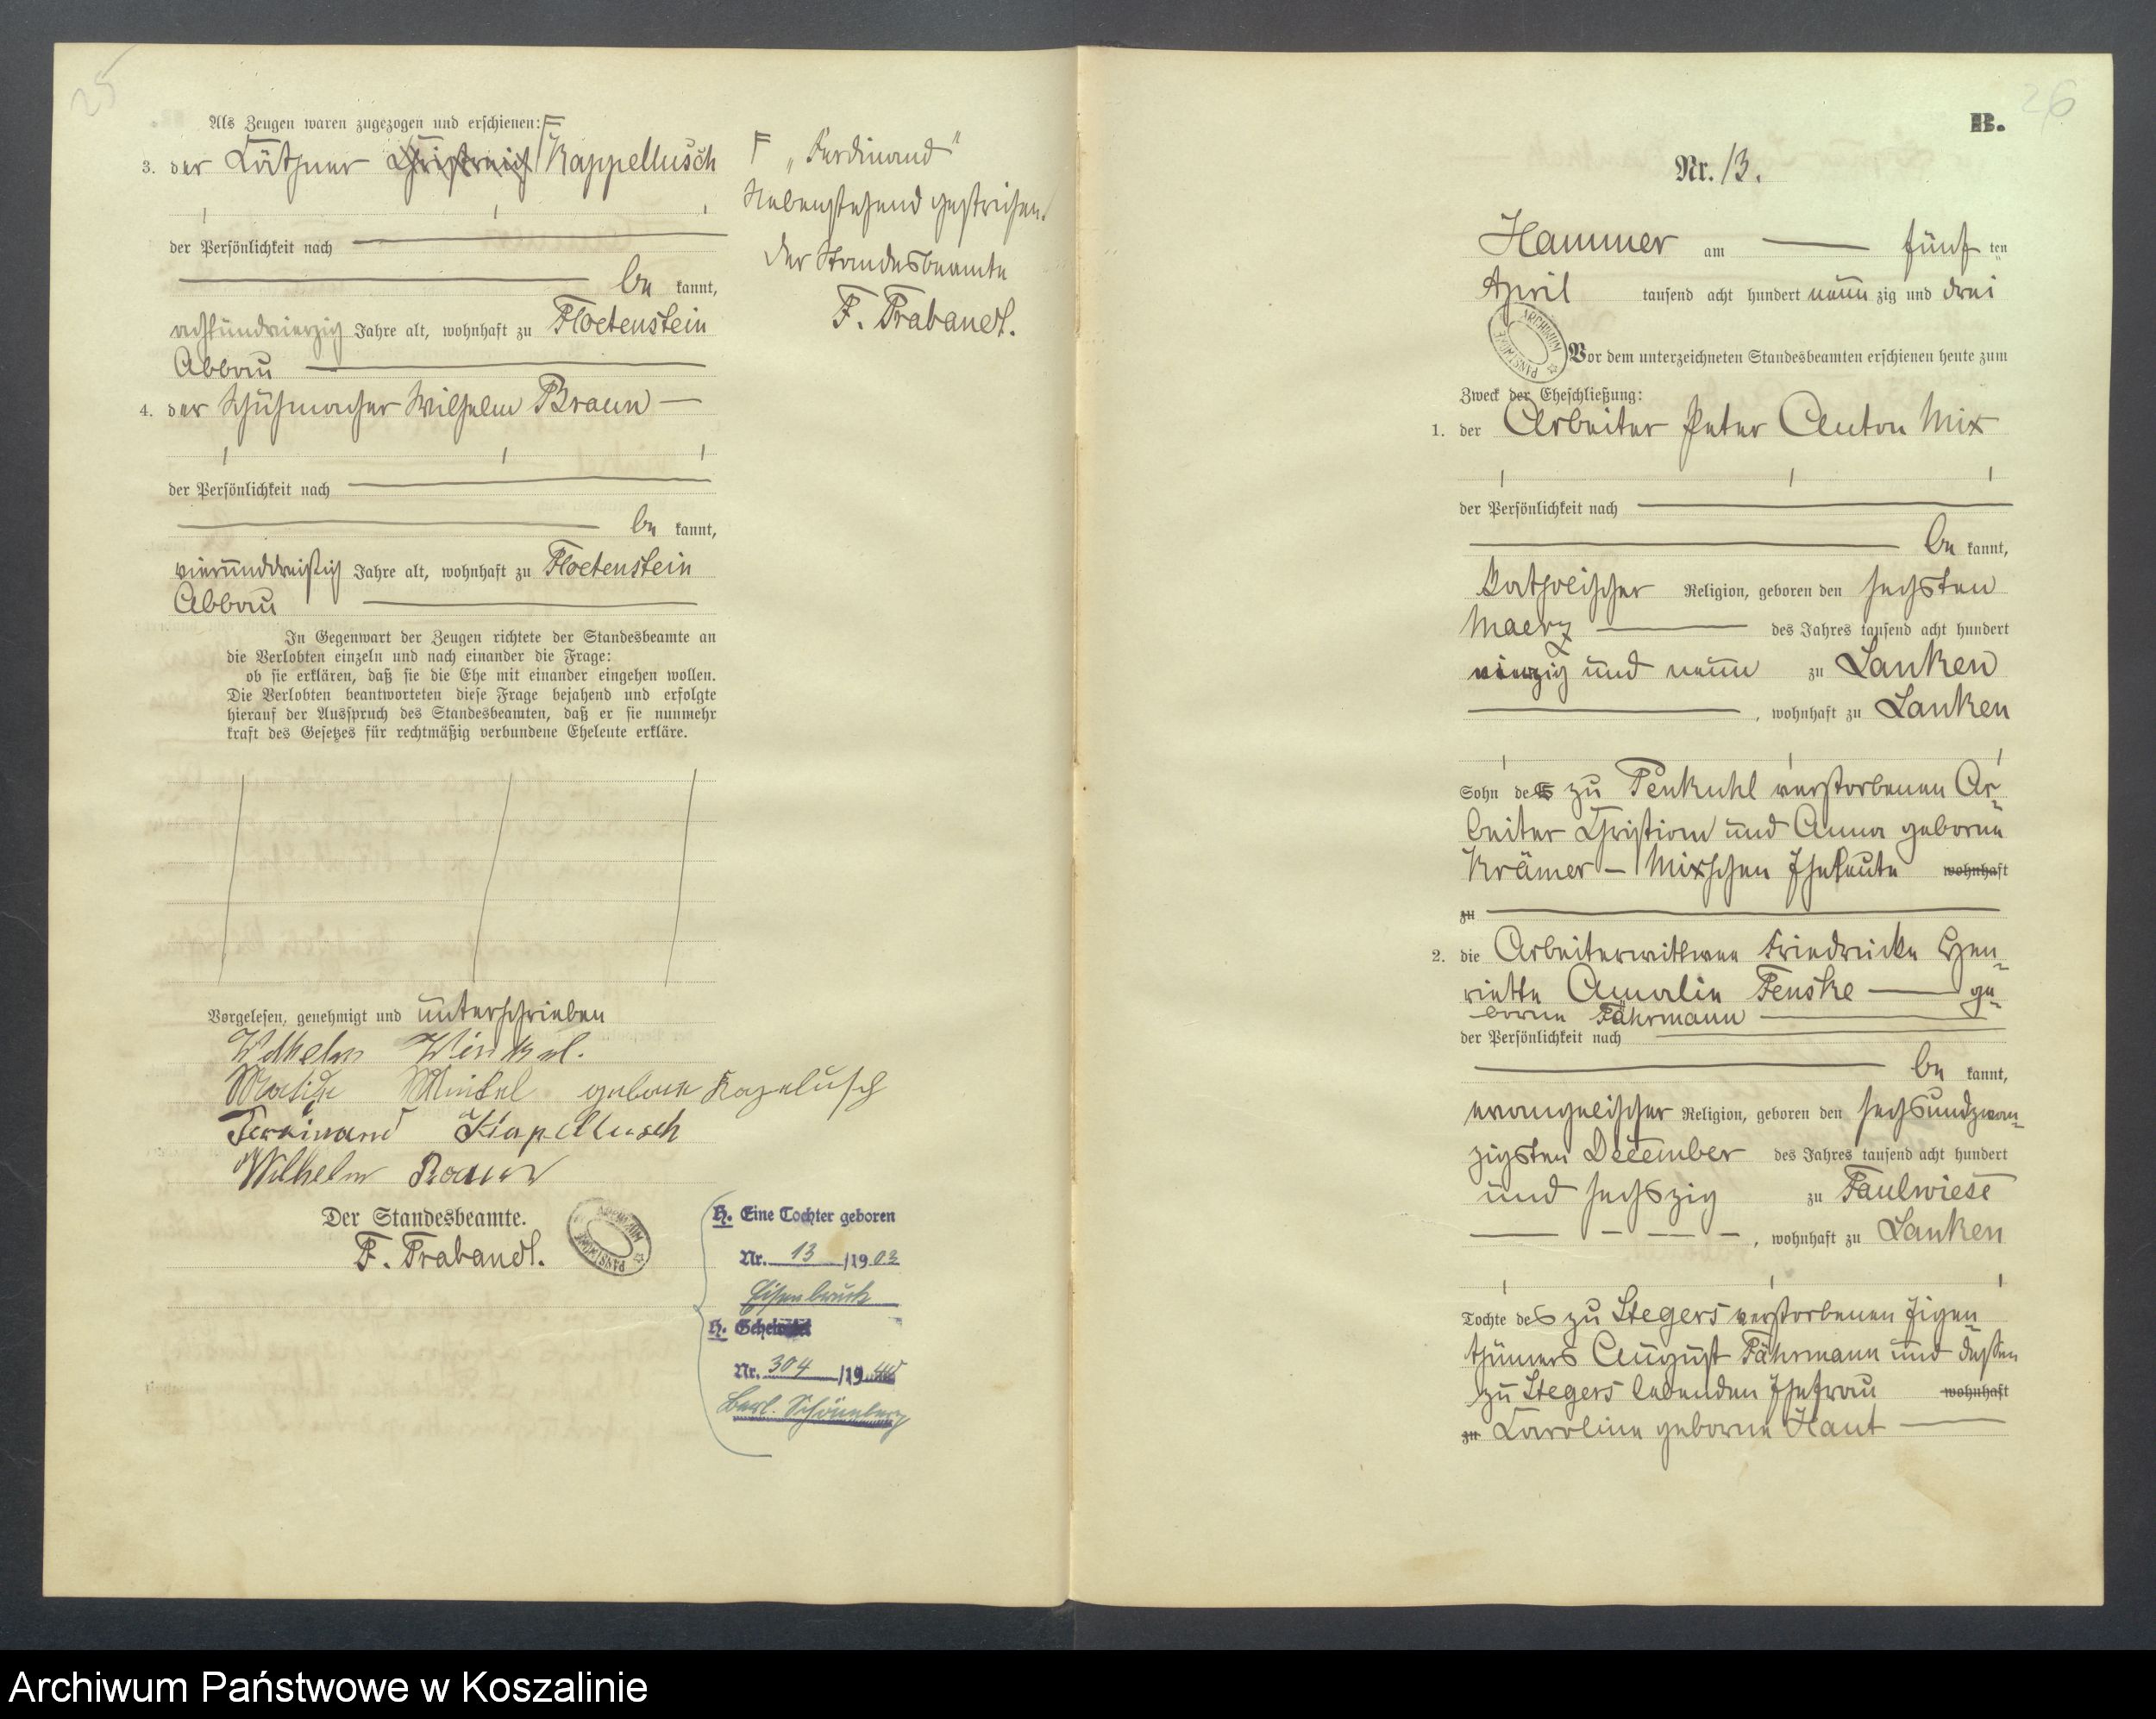 25
Als Zeugen waren zugezogen und erschienen:
3. der Käthner Kappellusch
der Persönlichkeit nach
be kannt,
achtundvierzig Jahre alt, wohnhaft zu Floetenstein
Abbau
4. der Schuhmacher Wilhelm Braun
der Persönlichkeit nach
be kannt,
vierunddreißig Jahre alt, wohnhaft zu Floetenstein
Abbau
In Gegenwart der Zeugen richtete der Standesbeamte an
die Verlobten einzeln und nach einander die Frage:
ob sie erklären, daß sie die Ehe mit einander eingehen wollen.
Die Verlobten beantworteten diese Frage bejahend und erfolgte
hierauf der Ausspruch des Standesbeamten, daß er sie nunmehr
kraft des Gesetzes für rechtmäßig verbundene Eheleute erkläre.
Vorgelesen, genehmigt und unterschrieben
Wilhelm Winkel.
Winkel geborne Kapelusch
Ferdinand Kapellusch
Wilhelm Braun
Der Standesbeamte.
F. Trabandt.
F „Ferdinand"
Nebenstehend gestrichen.
Der Standesbeamte
F. Trabandt.
H. Eine Tochter geboren
Nr. 13 /1903
Eisenbrück
H.
Nr. 304 /19
Berl. Schöneberg
ARCHIWUM PAŃSTWOWE
26
B.
Nr. 13.
Hammer am fünf ten
April tausend acht hundert neun zig und drei
ARCHIWUM PAŃSTWOWE
Vor dem unterzeichneten Standesbeamten erschienen heute zum
Zweck der Eheschließung:
1. der Arbeiter Peter Anton Mix
der Persönlichkeit nach
be kannt,
katholischer Religion, geboren den sechsten
Maerz des Jahres tausend acht hundert
vierzig und neun zu Lanken
, wohnhaft zu Lanken
Sohn der zu Penkuhl verstorbenen Ar-
beiter Christian und Anna geborne
Krämer – Mixschen Eheleute wohnhaft
zu
2. die Arbeiterwittwee Friedricke Hen-
riette Amalie Fenske ge-
borne Fährmann
der Persönlichkeit nach
be kannt,
evangelischer Religion, geboren den sechsundzwan-
zigsten December des Jahres tausend acht hundert
und sechszig zu Faulwiese
, wohnhaft zu Lanken
Tochte des zu Stegers verstorbenen Eigen-
thümers August Fährmann und dessen
zu Stegers lebenden Ehefrau wohnhaft
zu Caroline geborne Haut
Archiwum Państwowe w Koszalinie